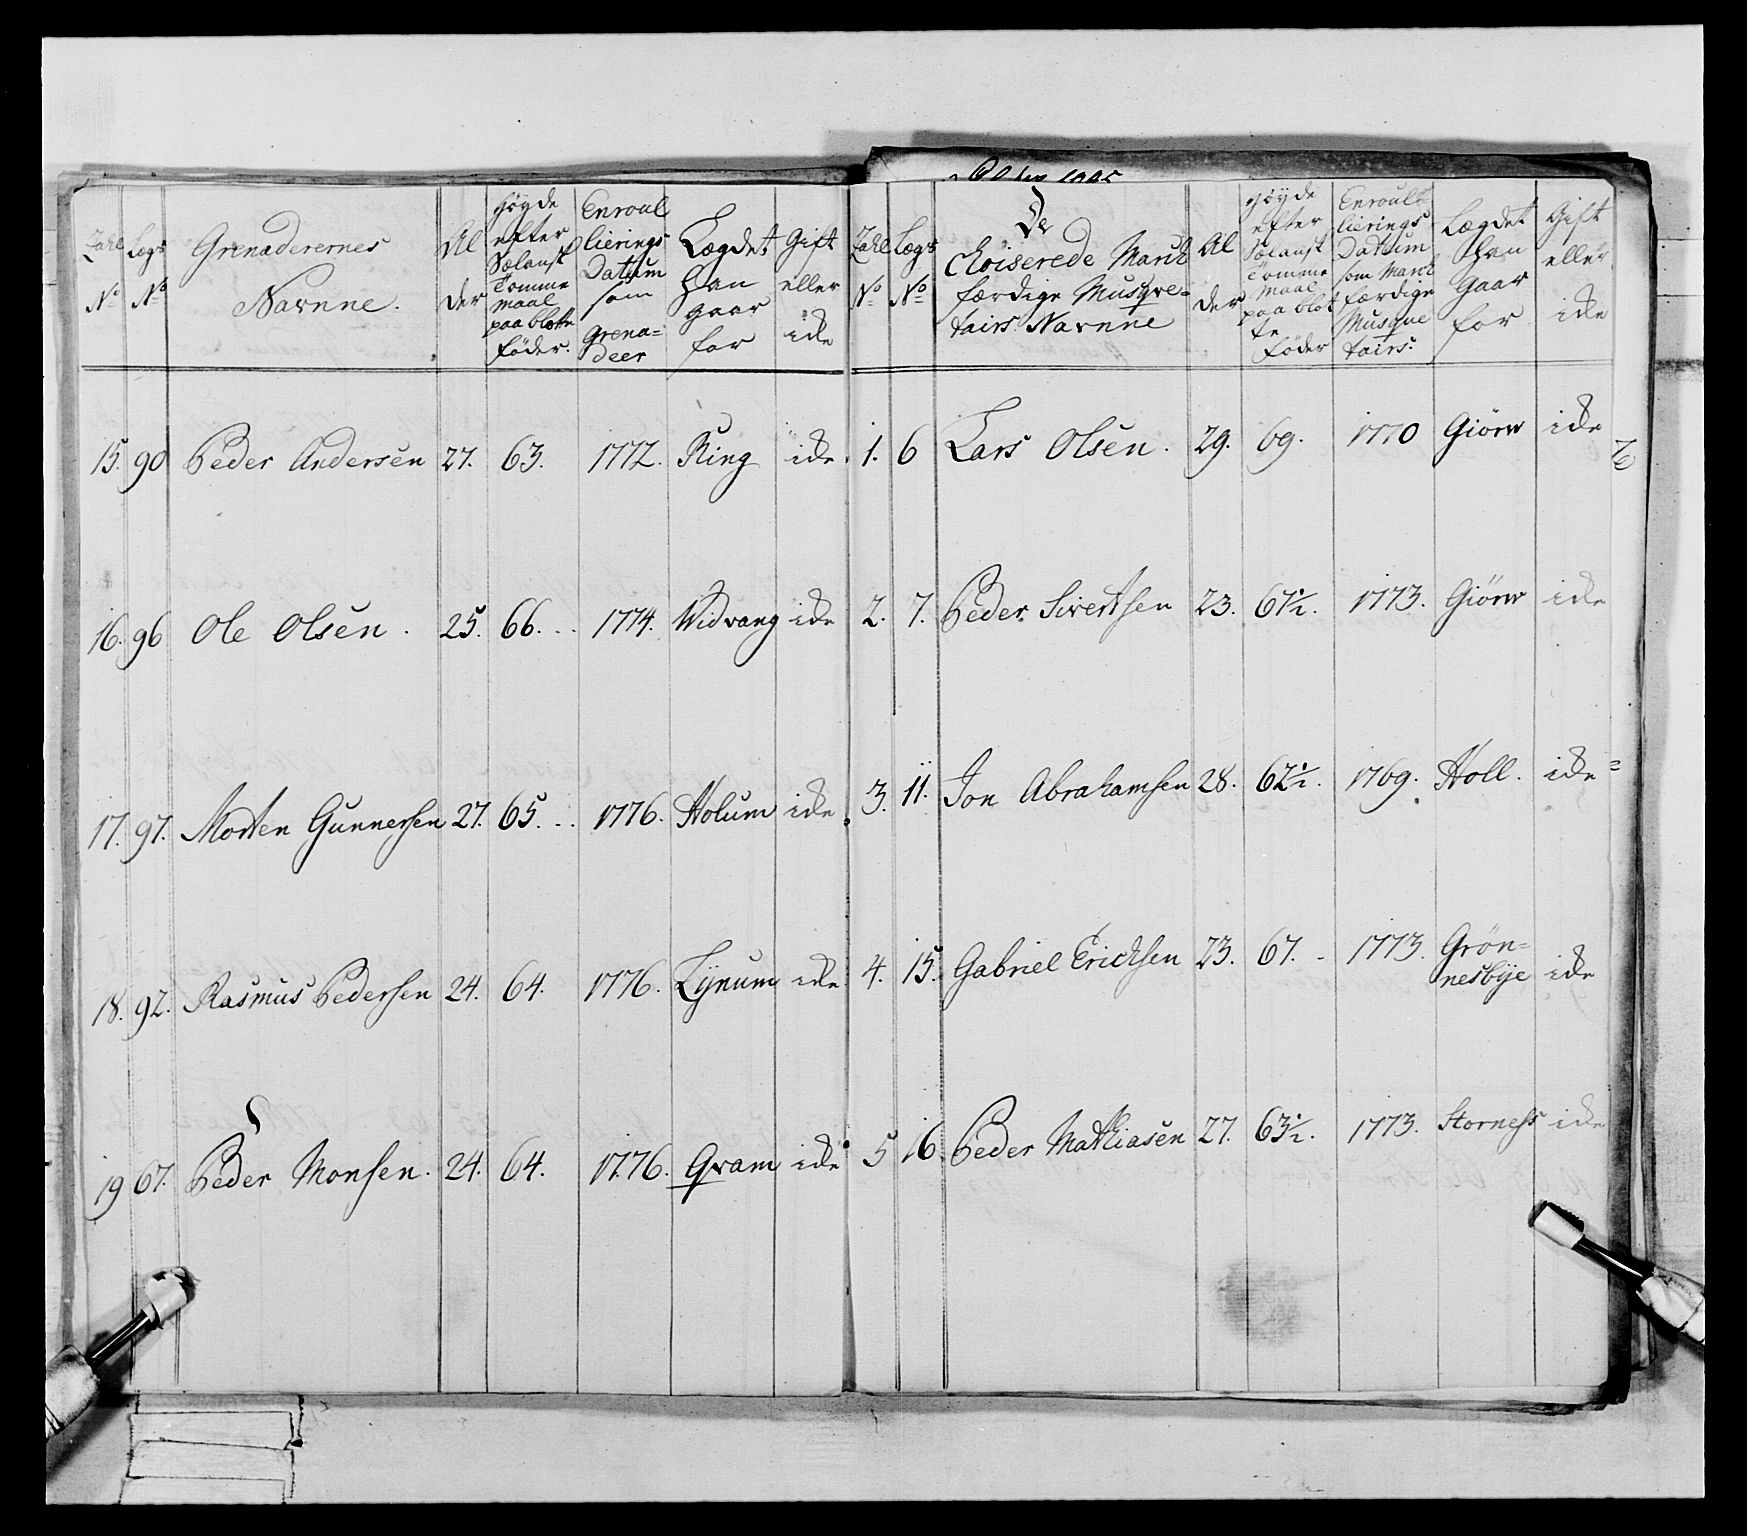 Zahl No
Lægs No
Grenaderernes Navnne.
Alder
Høyde efter Sælansk Tomme maal paa blotte føder.
Enroulierings Datum som Grena=deer
Lægdet Han gaar for
Gift eller icke
15. 90 Peder Andersen 27. 63. 1772. Ring icke
16. 96 Ole Olsen. 25. 66. 1774. Widvang icke
17. 97. Morten Gunnersen 27. 65. 1776. Holum icke
18. 92. Rasmus Pedersen 24. 64. 1776. Lÿnum icke
19 67. Peder Monsen. 24. 64. 1776. Qvam icke
Zahl No
Lægs No
De Choiserede March færdige Musqve=tairs Navnne
Alder
Høyde efter Sælansk Tomme Maal paa blotte føder
Enroullierings Datum som March færdige Musque tairs.
Lægdet Han Gaar for
Gift eller icke
1. 6 Lars Olsen. 29. 69. 1770 Giörw icke
2. 7. Peder Sivertsen 23. 67½. 1773. Giörw icke
3. 11. Jon Abrahamsen 28. 62½. 1769. Holl. icke
4. 15. Gabriel Ericksen 23. 67. 1773. Grön=
nesbÿe icke
5 16. Peder Mathiasen 27. 63½. 1773. Storness icke